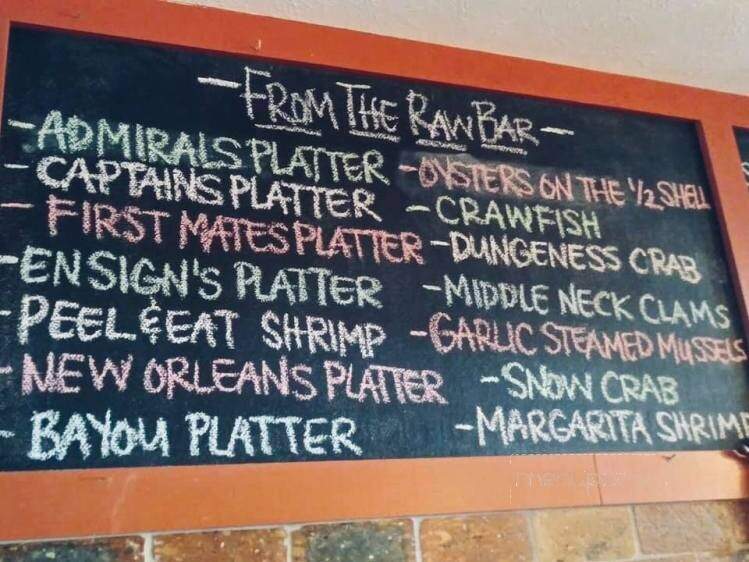 - FROM THE RAW BAR -
- ADMIRALS PLATTER
- CAPTAINS PLATTER
- FIRST MATES PLATTER
- ENSIGN'S PLATTER
- PEEL & EAT SHRIMP
- NEW ORLEANS PLATTER
- BAYOU PLATTER
- OYSTERS ON THE 1/2 SHELL
- CRAWFISH
- DUNGENESS CRAB
- MIDDLE NECK CLAMS
- GARLIC STEAMED MUSSELS
- SNOW CRAB
- MARGARITA SHRIMP